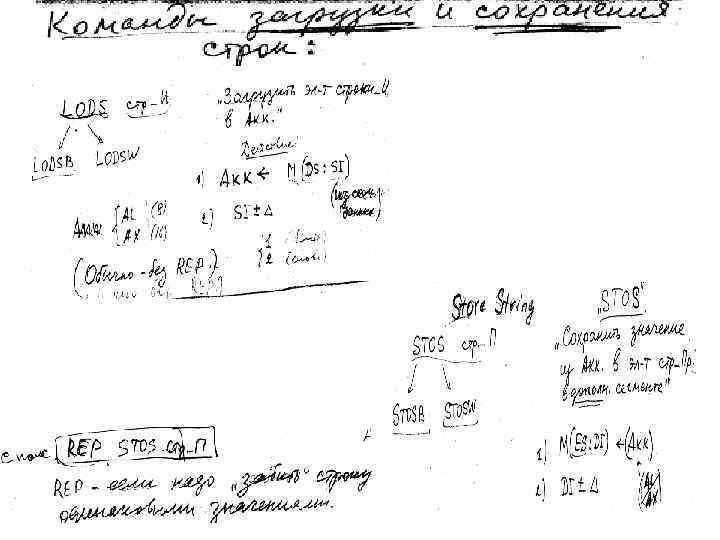 Команды загрузки и сохранения
строк:
LODS стр_И
LODSB LODSW
„Загрузить эл-т строки_И
в Акк."
Действие:
1) Акк ← M(DS:SI)
2) SI ± Δ
AL (B)
AX (W)
1
2
(Обычно - без REP.)
Store String
STOS стр_П
STOSB STOSW
„STOS"
„Сохранить значение
из Акк. в эл-т стр_Пр.
в дополн. сегменте"
1) M(ES:DI) ← (Акк)
2) DI ± Δ
AL
AX
REP STOS стр_П
REP - если надо „забить" строку
одинаковыми значениями.